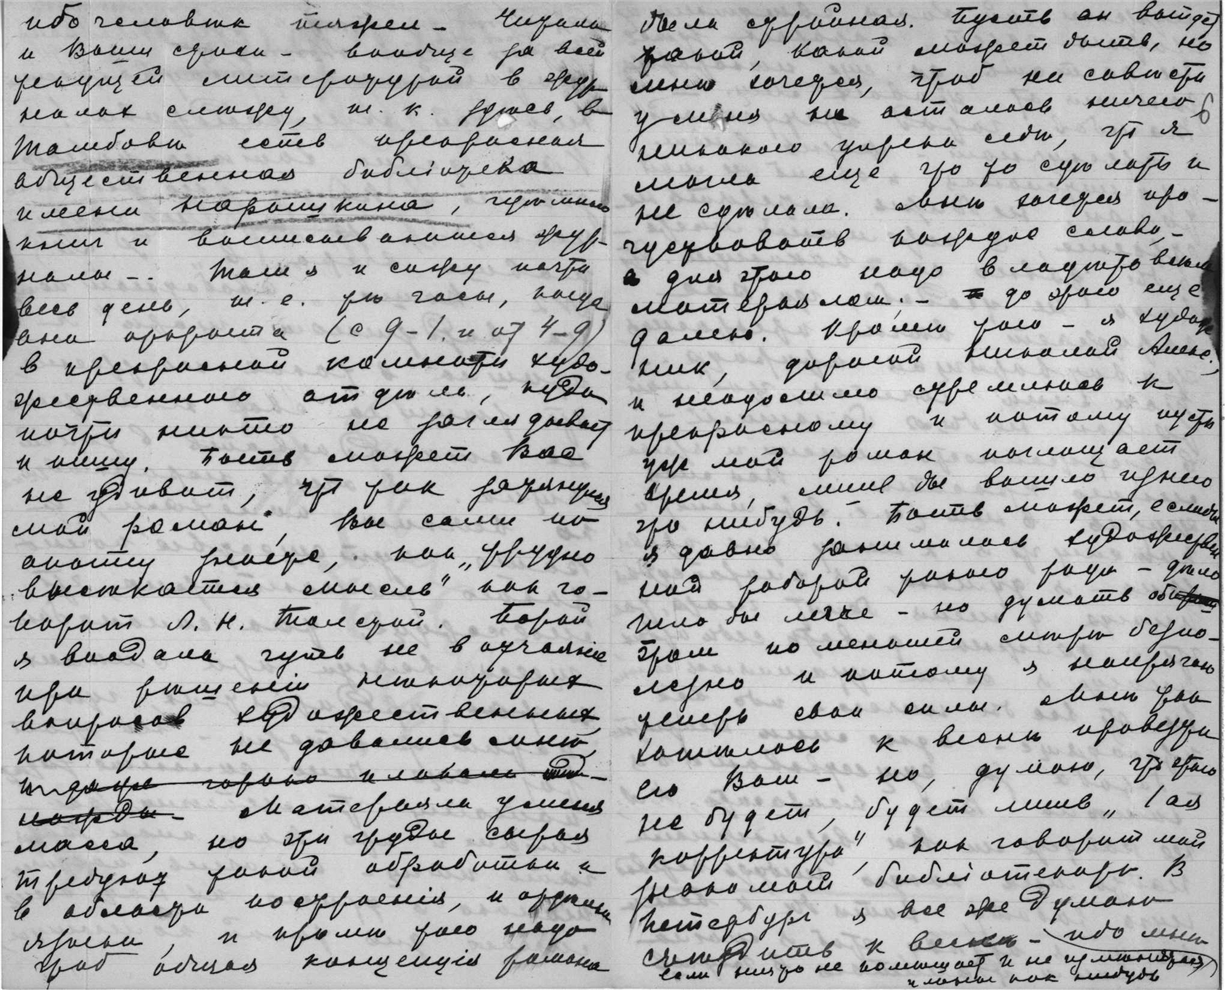 ибо человѣк тяжел — Читала
и Ваши сроки — вообще за всей
текущей литературой в жур-
налах слежу, т. к. здѣсь, в
Тамбовѣ есть прекрасная
общественная библіотека
имени Нарышкина, громады
книг и выписываются жур-
налы —. Там я и сижу почти
весь день, т. е. тѣ часы, когда
она открыта (с 9-1. и от 4-9)
в прекрасной комнатѣ худо-
жественного отдѣла, куда
почти никто не заглядывает
и пишу. Быть может Вас
не удивит, что так затянулся
мой роман, Вы сами по
опыту знаете, как „трудно
высекается мысль" как го-
ворит Л. Н. Толстой. Порой
я впадала чуть не в отчаяніе
при рѣшеніи нѣкоторых
вопросов художественных
которые не давались мнѣ,
Матерьяла у меня
масса, но эти груды сырья
требуют такой обработки и
в области построенія, и
языка, и кромѣ того надо
чтоб общая концепція романа
была стройная. Пусть он выйдет
такой, какой может быть, но
мнѣ хочется, чтоб на совѣсти
у меня не осталось ничего 6
никакого упрека себѣ, что я
могла еще что то сдѣлать и
не сдѣлала. Мнѣ хочется про-
чувствовать каждое слово, —
а для этого надо владѣть всѣм
матерьялом. — до этого еще
далеко. Кромѣ того — я худож-
ник, дорогой Николай Алекс.,
и неудержимо стремлюсь к
прекрасному и потому пусть
уж мой роман поглощает
время, лишь бы вышло из него
что нибудь. Быть может, если бы
я давно занималась художествен
ной работой такого рода — дѣло
шло бы легче — но думать об
этом по меньшей мѣрѣ безпо-
лезно и потому я напрягаю
теперь свои силы. Мнѣ так
хотѣлось к веснѣ привезти
его Вам — но, думаю, что этого
не будет, будет лишь „1ая
корректура", как говорит мой
знакомый библіотекарь. В
Петербург я все же думаю
съѣздить к веснѣ — ибо мнѣ
если ничто не помѣшает и не измѣнится
планы как нибудь